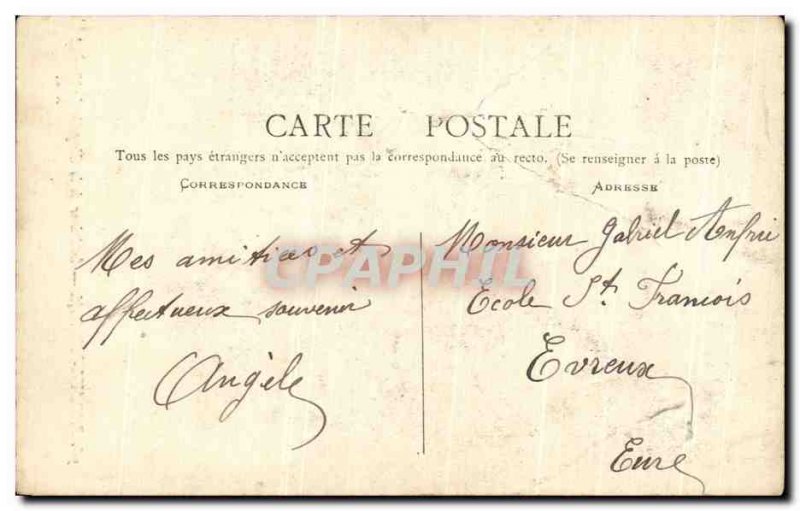 CARTE POSTALE
Tous les pays étrangers n'acceptent pas la correspondance au recto. (Se renseigner à la poste)
CORRESPONDANCE
ADRESSE
Mes amitiées et
affectueux souvenir
Angèle
Monsieur Gabriel Anfrie
Ecole St. Francois
Evreux
Eure
CPAPHIL